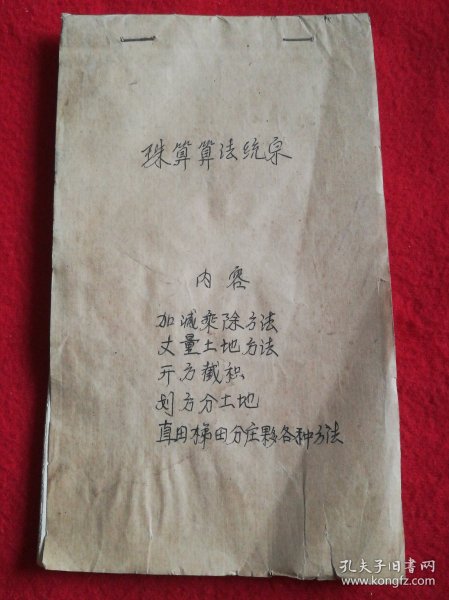 珠算算法统宗
内容
加减乘除方法
丈量土地方法
开方截积
划方分土地
直田梯田分庄夥各种方法
孔夫子旧书网
www.kongfz.com